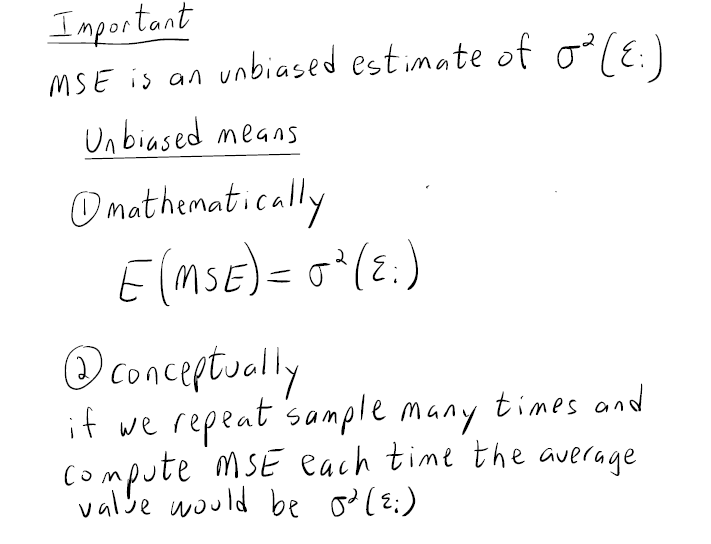 Important
MSE is an unbiased estimate of σ²(ε:)
Unbiased means
① mathematically
E(MSE) = σ²(ε:)
② conceptually
if we repeat sample many times and
compute MSE each time the average
value would be σ²(ε:)